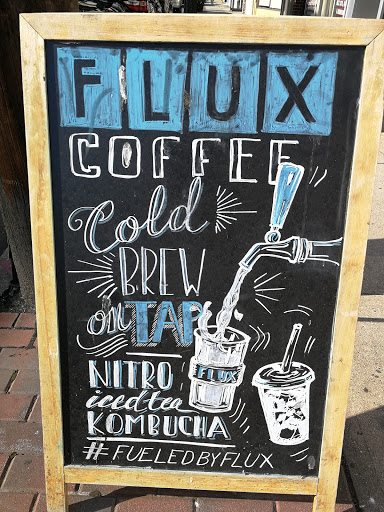 FLUX
COFFEE
Cold
BREW
on TAP
FLUX
NITRO
iced tea
KOMBUCHA
#FUELEDBYFLUX